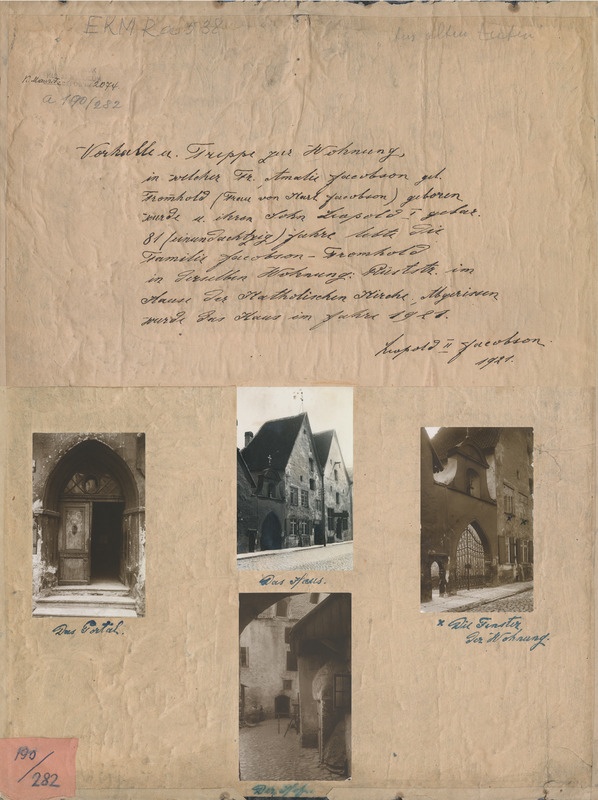 EKM
"Aus alten Zeiten"
2074
a 190/282
Vorhalle u. Treppe zur Wohnung,
in welcher Fr. Amalie Jacobson geb.
Fromhold (Frau von Karl Jacobson) geboren
wurde u. ihren Sohn Leopold I gebar.
81 (einundachtzig) Jahre lebte die
Familie Jacobson-Fromhold
in derselben Wohnung: Russtr. im
Hause der Katholischen Kirche, Abgerissen
wurde das Haus im Jahre 1921.
Leopold II Jacobson.
1921.
Das Portal.
Das Haus.
x Die Fenster
der Wohnung.
Der Hof.
190/
282